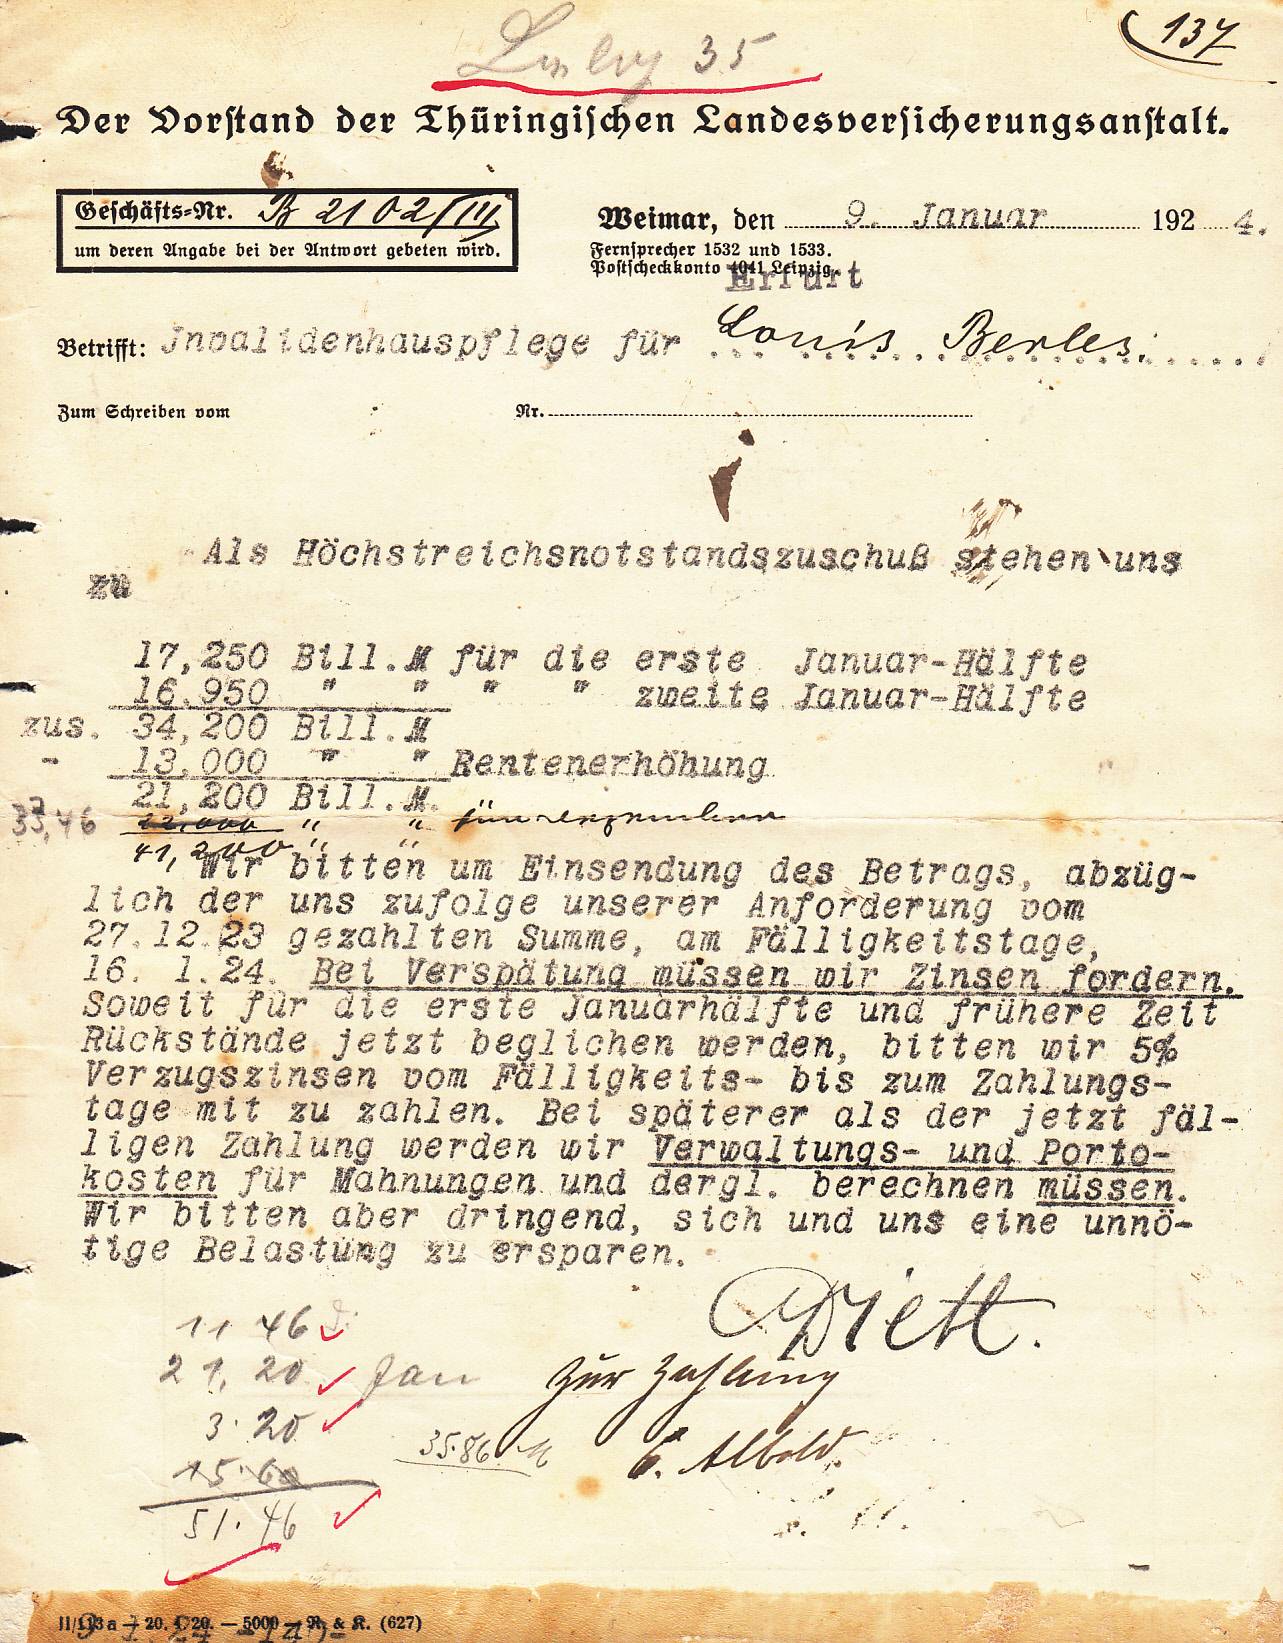 137
35
Der Vorstand der Thüringischen Landesversicherungsanstalt.
Geschäfts-Nr. B 2102/III
um deren Angabe bei der Antwort gebeten wird.
Weimar, den 9. Januar 1924.
Fernsprecher 1532 und 1533.
Postscheckkonto 4041 Leipzig.
Erfurt
Betrifft: Invalidenhauspflege für Louis Berles.
Zum Schreiben vom Nr.
Als Höchstreichsnotstandszuschuß stehen uns
zu
17,250 Bill.M für die erste Januar-Hälfte
16.950 " " " " zweite Januar-Hälfte
zus. 34,200 Bill.M
- 13.000 " " Rentenerhöhung
21,200 Bill.M.
33,46 22,000 " "
41,200 " "
Wir bitten um Einsendung des Betrags, abzüg-
lich der uns zufolge unserer Anforderung vom
27.12.23 gezahlten Summe, am Fälligkeitstage,
16. 1.24. Bei Verspätung müssen wir Zinsen fordern.
Soweit für die erste Januarhälfte und frühere Zeit
Rückstände jetzt beglichen werden, bitten wir 5%
Verzugszinsen vom Fälligkeits- bis zum Zahlungs-
tage mit zu zahlen. Bei späterer als der jetzt fäl-
ligen Zahlung werden wir Verwaltungs- und Porto-
kosten für Mahnungen und dergl. berechnen müssen.
Wir bitten aber dringend, sich und uns eine unnö-
tige Belastung zu ersparen.
Diett.
11 46
21,20 Jan
zur Zahlung
3.20
35.86 M
E. Albold.
15.60
51.46
II/113a — 20. 1. 20. — 5000 — R. & K. (627)